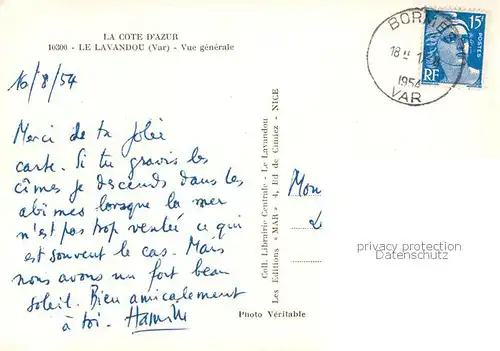 LA COTE D'AZUR
10300 - LE LAVANDOU (Var) - Vue générale
16/8/54
Merci de ta jolie
carte. Si tu gravis les
cîmes je descends dans les
abîmes lorsque la mer
n'est pas trop ventée ce qui
est souvent le cas. Mais
nous avons un fort beau
soleil. Bien amicalement
à toi.
Photo Véritable
Coll. Librairie Centrale - Le Lavandou
Les Editions "MAR" 4, Bd de Cimiez - NICE
15F
POSTES
RF
18
1954
VAR
Mon
privacy protection
Datenschutz